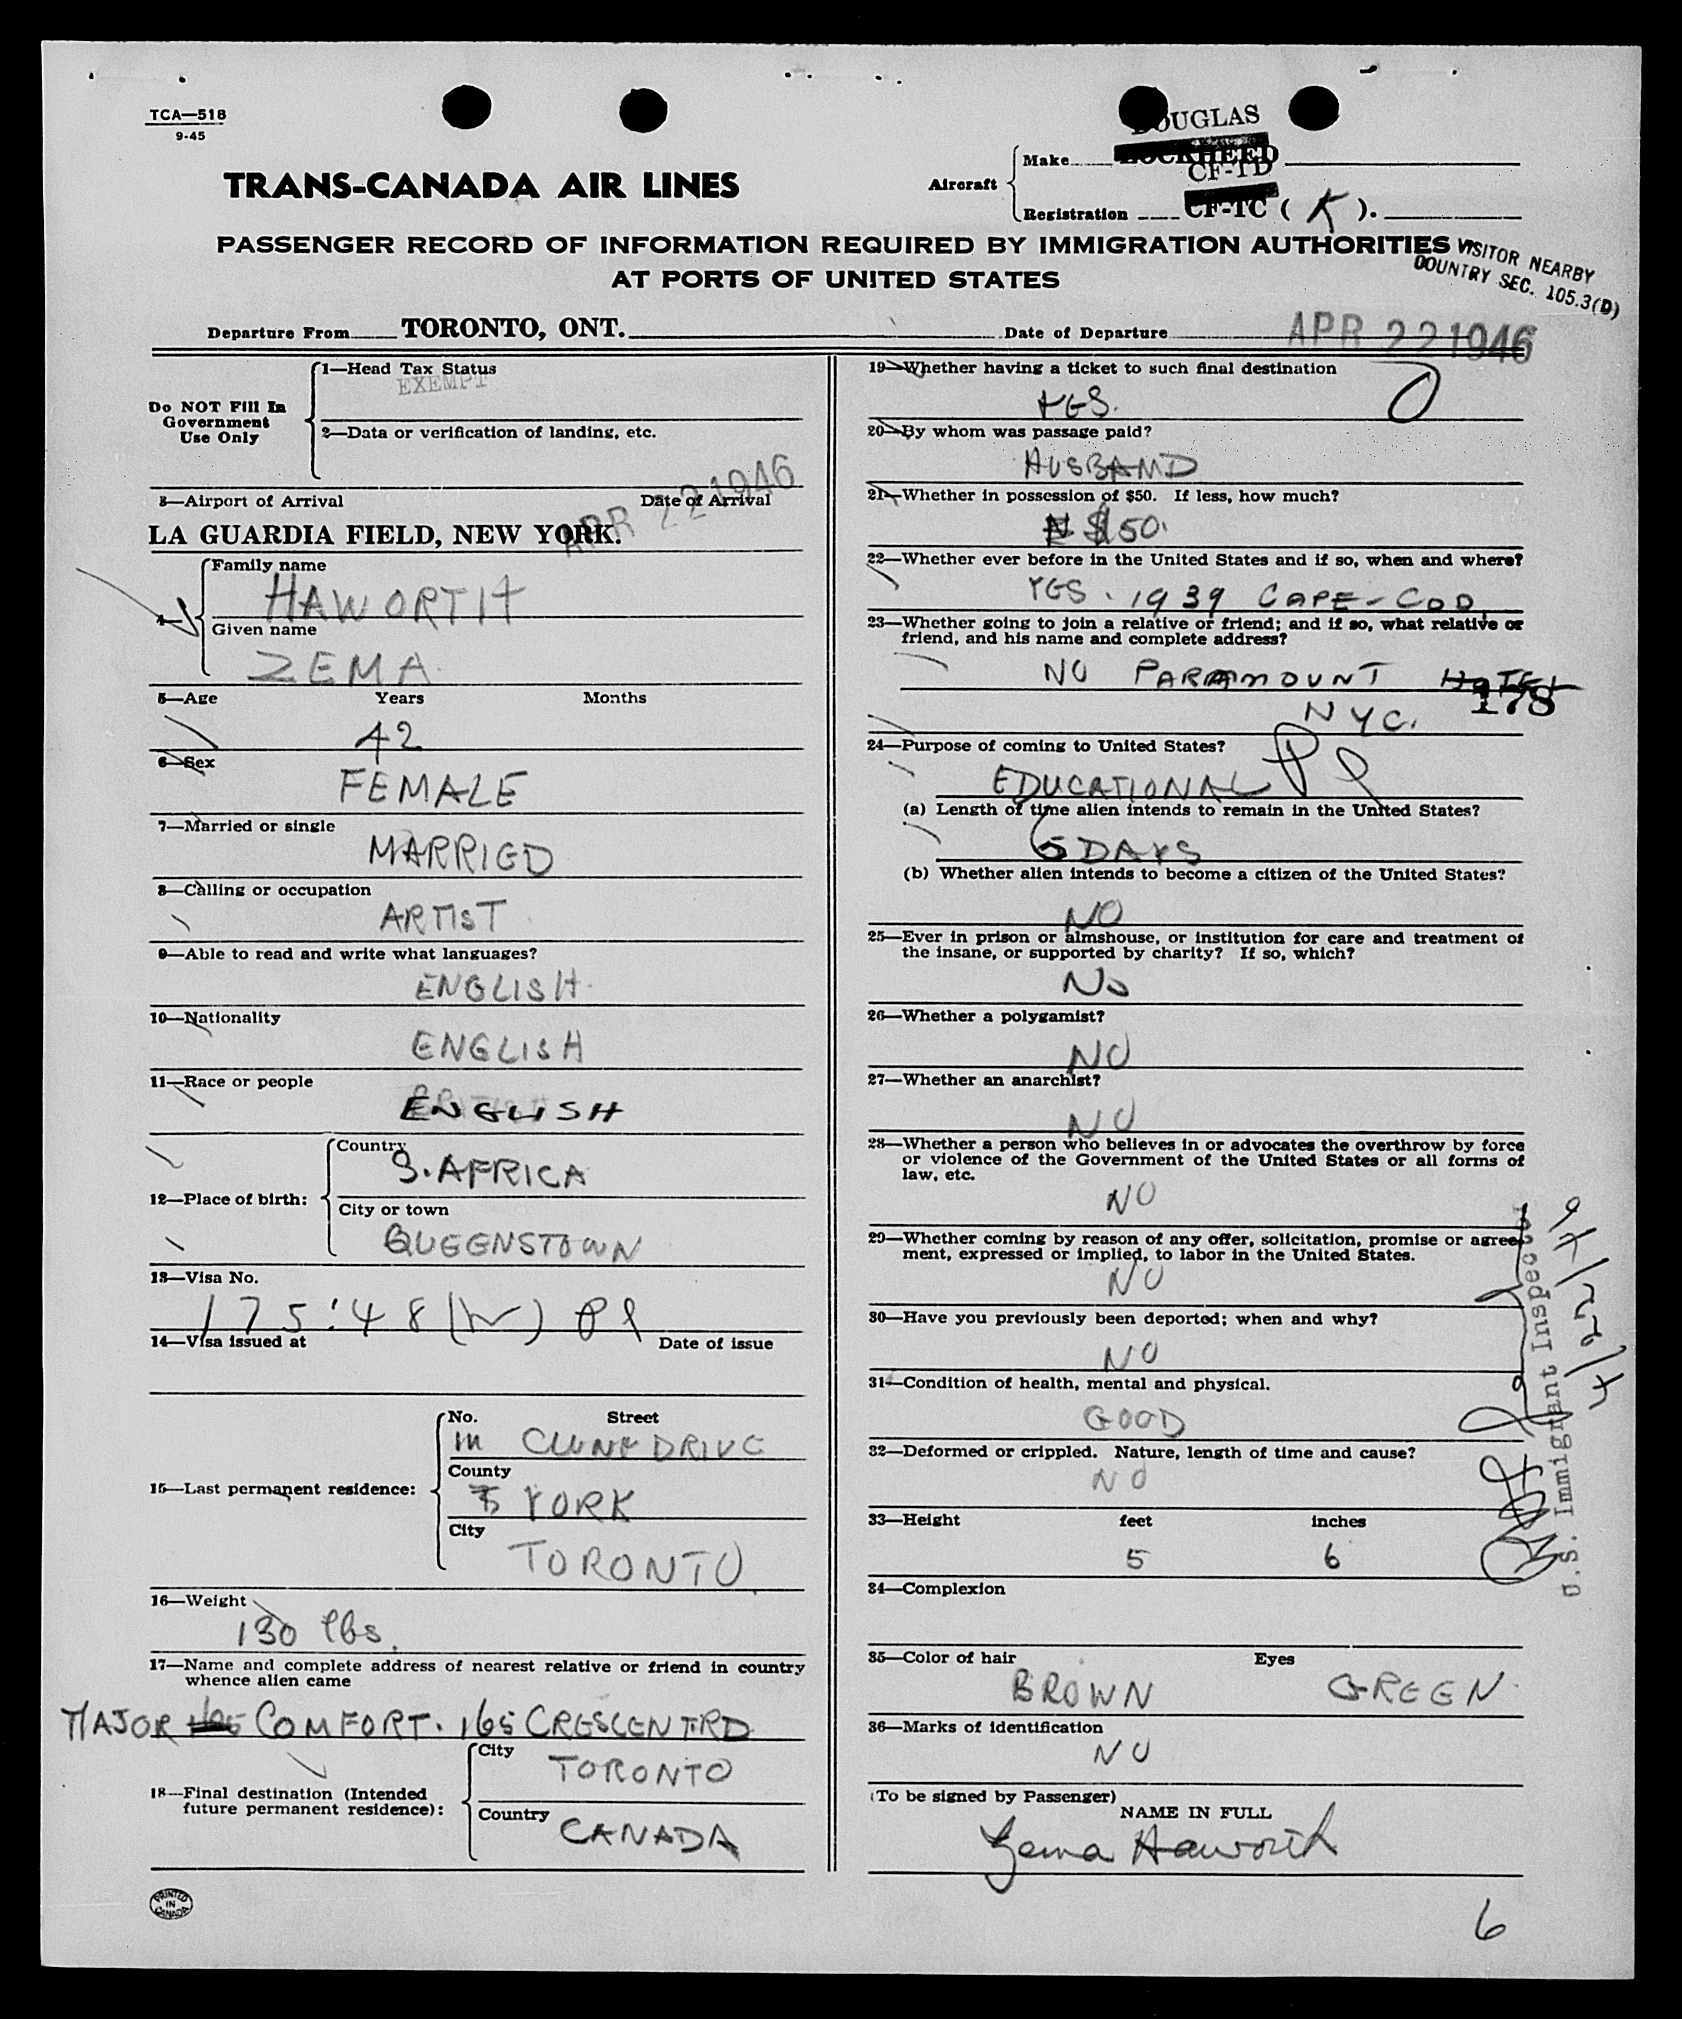 TCA—518
9-45
DOUGLAS
Make LOCKHEED
CF-TD
TRANS-CANADA AIR LINES
Aircraft
Registration CF-TC ( K ).
PASSENGER RECORD OF INFORMATION REQUIRED BY IMMIGRATION AUTHORITIES
AT PORTS OF UNITED STATES
VISITOR NEARBY
COUNTRY SEC. 105.3(D)
Departure From TORONTO, ONT.
Date of Departure APR 22 1946
Do NOT Fill In
Government
Use Only
1—Head Tax Status
EXEMPT
2—Data or verification of landing, etc.
3—Airport of Arrival Date of Arrival
APR 22 1946
LA GUARDIA FIELD, NEW YORK.
4—
Family name
HAWORTH
Given name
ZEMA
5—Age Years Months
42
6—Sex
FEMALE
7—Married or single
MARRIED
8—Calling or occupation
ARTIST
9—Able to read and write what languages?
ENGLISH
10—Nationality
ENGLISH
11—Race or people
ENGLISH
12—Place of birth:
Country
S. AFRICA
City or town
QUEENSTOWN
13—Visa No.
175:48
14—Visa issued at Date of issue
15—Last permanent residence:
No. Street
CLUNE DRIVE
County
YORK
City
TORONTO
16—Weight
130 lbs.
17—Name and complete address of nearest relative or friend in country
whence alien came
MAJOR COMFORT. 165 CRESCENT RD
18—Final destination (Intended
future permanent residence):
City
TORONTO
Country
CANADA
PRINTED
IN
CANADA
19—Whether having a ticket to such final destination
YES.
20—By whom was passage paid?
HUSBAND
21—Whether in possession of $50. If less, how much?
$50.
22—Whether ever before in the United States and if so, when and where?
YES. 1939 CAPE-COD.
23—Whether going to join a relative or friend; and if so, what relative or
friend, and his name and complete address?
NO PARAMOUNT HOTEL
178
NYC.
24—Purpose of coming to United States?
EDUCATIONAL
(a) Length of time alien intends to remain in the United States?
DAYS
(b) Whether alien intends to become a citizen of the United States?
NO
25—Ever in prison or almshouse, or institution for care and treatment of
the insane, or supported by charity? If so, which?
No
26—Whether a polygamist?
NO
27—Whether an anarchist?
NO
28—Whether a person who believes in or advocates the overthrow by force
or violence of the Government of the United States or all forms of
law, etc.
NO
29—Whether coming by reason of any offer, solicitation, promise or agree-
ment, expressed or implied, to labor in the United States.
NO
30—Have you previously been deported; when and why?
NO
31—Condition of health, mental and physical.
GOOD
32—Deformed or crippled. Nature, length of time and cause?
NO
33—Height feet inches
5 6
34—Complexion
35—Color of hair Eyes
BROWN GREEN
36—Marks of identification
NO
(To be signed by Passenger)
NAME IN FULL
Zema Haworth
6
U.S. Immigrant Inspector
4/22/46